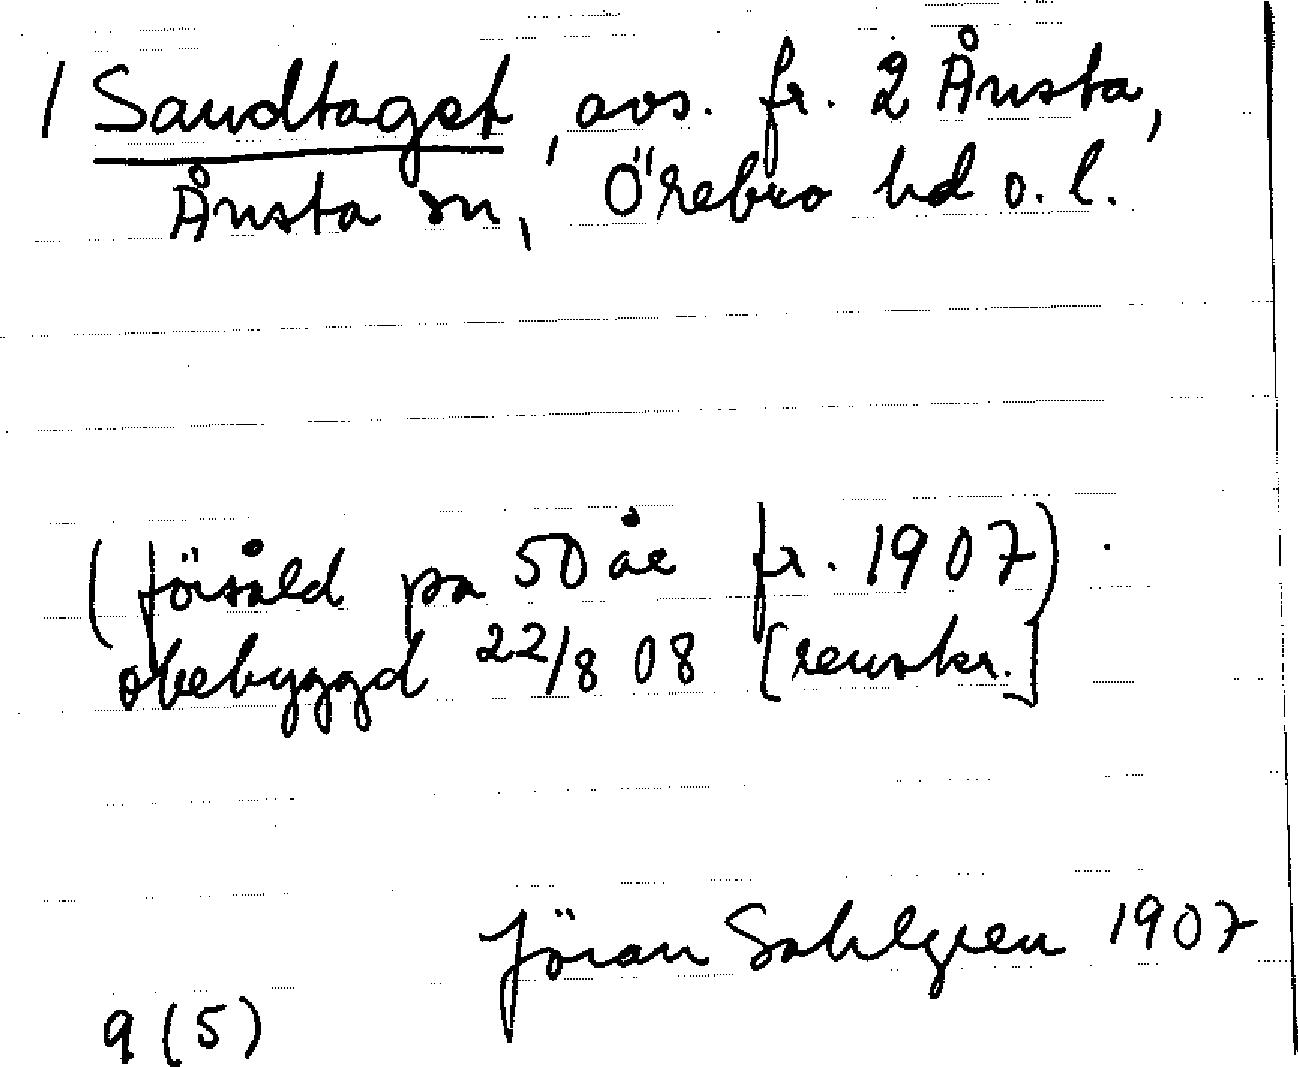 1 Sandtaget, avs. fr. 2 Ånsta,
Ånsta sn, Örebro hd o. l.
(försåld på 50 år fr. 1907).
obebyggd 22/8 08 [renskr.]
Jöran Sahlgren 1907
9 (5)